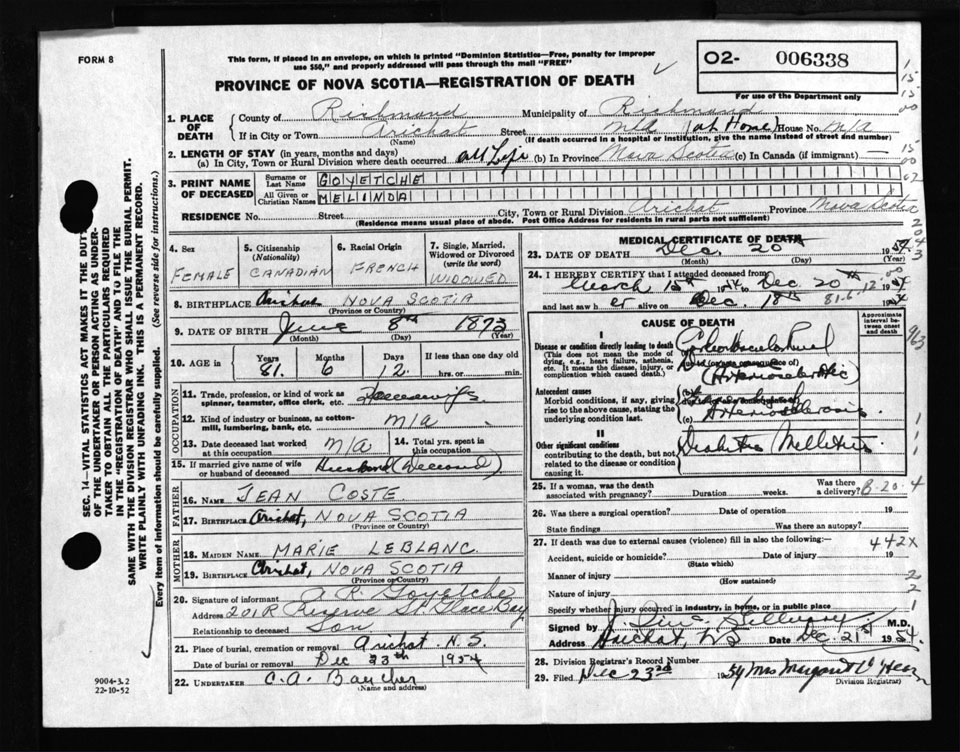 FORM 8
This form, if placed in an envelope, on which is printed "Dominion Statistics—Free, penalty for improper
use $50," and properly addressed will pass through the mail "FREE"
O2- 006338
For use of the Department only
PROVINCE OF NOVA SCOTIA—REGISTRATION OF DEATH
1. PLACE OF DEATH
County of Richmond Municipality of Richmond
If in City or Town Arichat Street N/a (at Home) House No. N/A
(Name) (If death occurred in a hospital or institution, give the name instead of street and number)
2. LENGTH OF STAY (in years, months and days)
(a) In City, Town or Rural Division where death occurred all Life (b) In Province Nova Scotia (c) In Canada (if immigrant) —
3. PRINT NAME OF DECEASED
Surname or Last Name GOYETCHE
All Given or Christian Names MELINDA
RESIDENCE No. Street City, Town or Rural Division Arichat Province Nova Scotia
(Residence means usual place of abode. Post Office Address for residents in rural parts not sufficient)
4. Sex FEMALE
5. Citizenship (Nationality) CANADIAN
6. Racial Origin FRENCH
7. Single, Married, Widowed or Divorced (write the word) WIDOWED
8. BIRTHPLACE Arichat NOVA SCOTIA
(Province or Country)
9. DATE OF BIRTH June 8th 1873
(Month) (Day) (Year)
10. AGE in Years 81. Months 6 Days 12. If less than one day old
hrs. or min.
OCCUPATION
11. Trade, profession, or kind of work as spinner, teamster, office clerk, etc. Housewife
12. Kind of industry or business, as cotton-mill, lumbering, bank, etc. N/A
13. Date deceased last worked at this occupation N/A
14. Total yrs. spent in this occupation
15. If married give name of wife or husband of deceased Husband (Deceased)
FATHER
16. NAME JEAN COSTE
17. BIRTHPLACE Arichat, NOVA SCOTIA
(Province or Country)
MOTHER
18. MAIDEN NAME MARIE LEBLANC
19. BIRTHPLACE Arichat, NOVA SCOTIA
(Province or Country)
20. Signature of informant A R. Goyetche
Address 201R Reserve St. Glace Bay
Relationship to deceased Son
21. Place of burial, cremation or removal Arichat N.S.
Date of burial or removal Dec 23th 1954
22. UNDERTAKER C.A. Baucher
(Name and address)
MEDICAL CERTIFICATE OF DEATH
23. DATE OF DEATH Dec. 20th 1954.
(Month) (Day) (Year)
24. I HEREBY CERTIFY that I attended deceased from
March 15th 1954 to Dec. 20th 1954
and last saw h er alive on Dec. 18th 81.6.12 1954
CAUSE OF DEATH
Approximate interval between onset and death
I
Disease or condition directly leading to death
(This does not mean the mode of dying, e.g., heart failure, asthenia, etc. It means the disease, injury, or complication which caused death.)
(Arteriosclerotic)
Antecedent causes
Morbid conditions, if any, giving rise to the above cause, stating the underlying condition last.
(c)
Arteriosclerosis.
II
Other significant conditions contributing to the death, but not related to the disease or condition causing it.
Diabetes Mellitus
25. If a woman, was the death associated with pregnancy? Duration weeks. Was there a delivery? B-20-4
26. Was there a surgical operation? Date of operation 19
State findings Was there an autopsy?
27. If death was due to external causes (violence) fill in also the following:— 442X
Accident, suicide or homicide? Date of injury 19
(State which)
Manner of injury
(How sustained)
Nature of injury
Specify whether injury occurred in industry, in home, or in public place
Signed by M.D.
Address Arichat, NS Date Dec. 21st 1954.
28. Division Registrar's Record Number
29. Filed Dec 23rd 1954 Mrs Margaret
Division Registrar)
SEC. 14—VITAL STATISTICS ACT MAKES IT THE DUTY
OF THE UNDERTAKER OR PERSON ACTING AS UNDER-
TAKER TO OBTAIN ALL THE PARTICULARS REQUIRED
IN THE "REGISTRATION OF DEATH" AND TO FILE THE
SAME WITH THE DIVISION REGISTRAR WHO SHALL ISSUE THE BURIAL PERMIT.
WRITE PLAINLY WITH UNFADING INK. THIS IS A PERMANENT RECORD.
Every item of information should be carefully supplied. (See reverse side for instructions.)
9004-3.2
22-10-52